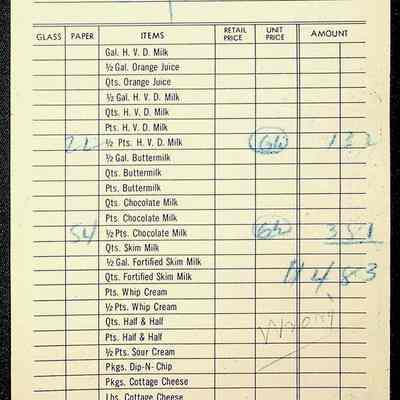 GLASS PAPER ITEMS RETAIL PRICE UNIT PRICE AMOUNT
Gal. H. V. D. Milk
½ Gal. Orange Juice
Qts. Orange Juice
½ Gal. H. V. D. Milk
Qts. H. V. D. Milk
Pts. H. V. D. Milk
22 ½ Pts. H. V. D. Milk 6½ 1 32
½ Gal. Buttermilk
Qts. Buttermilk
Pts. Buttermilk
Qts. Chocolate Milk
Pts. Chocolate Milk
54 ½ Pts. Chocolate Milk 6½ 3 51
Qts. Skim Milk
½ Gal. Fortified Skim Milk
Qts. Fortified Skim Milk 4 83
Pts. Whip Cream
½ Pts. Whip Cream
Qts. Half & Half
Pts. Half & Half
½ Pts. Sour Cream
Pkgs. Dip-N- Chip
Pkgs. Cottage Cheese
Lbs. Cottage Cheese